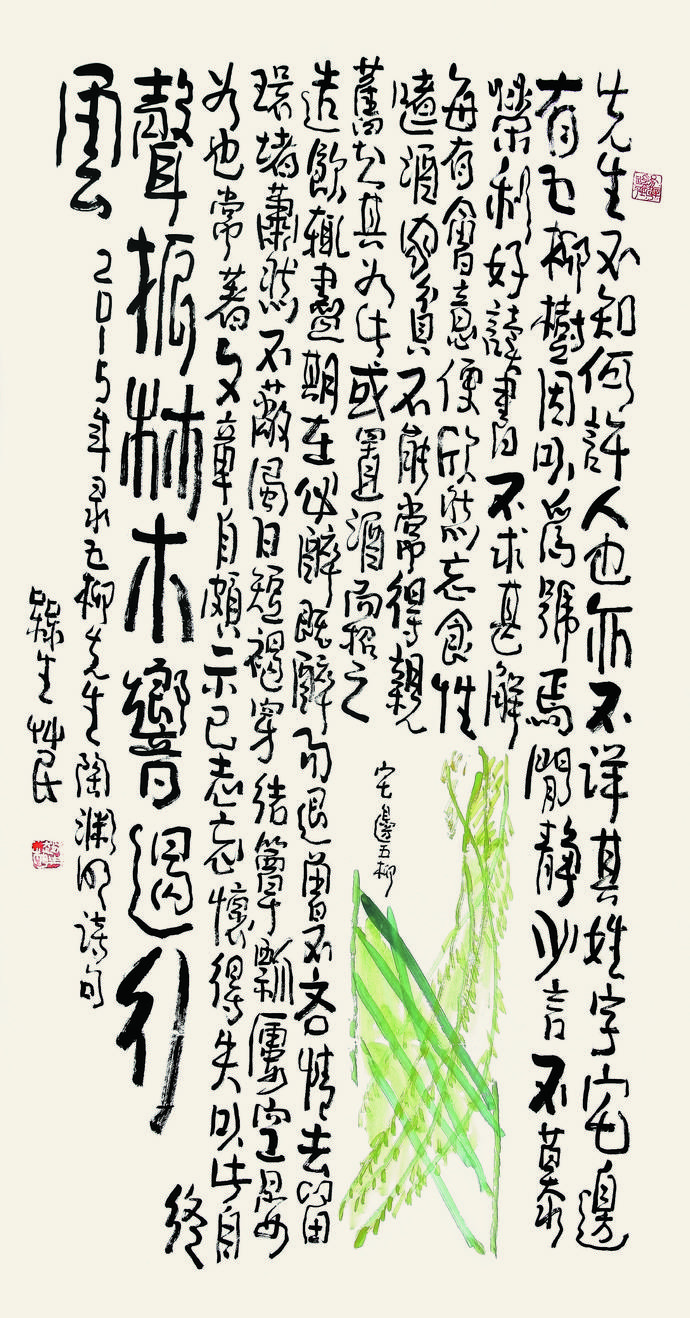 先生不知何許人也亦不详其姓字宅邊
有五柳樹因以爲號焉閒静少言不慕
榮利好讀書不求甚解
每有會意便欣然忘食性
嗜酒家貧不能常得親
舊知其如此或置酒而招之
造飲輒盡期在必醉既醉而退曾不吝情去留
環堵蕭然不蔽風日短褐穿結簞瓢屢空晏
如也常著文章自頗示己志忘懷得失以此自
終
宅邊五柳
聲振林木響遏行
雲
2015年录五柳先生陶渊明诗句
生艸民